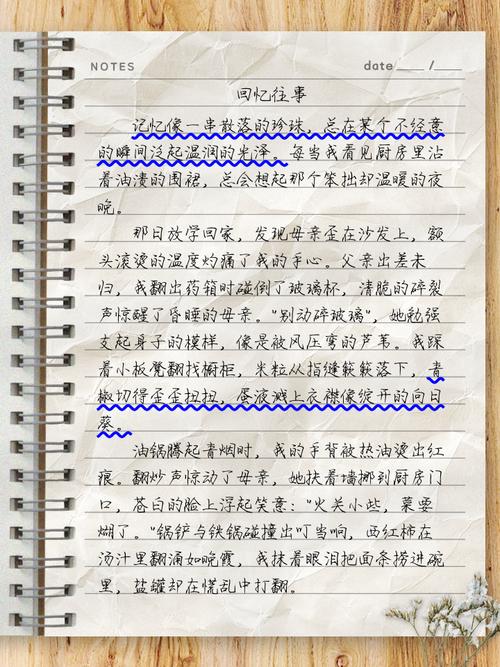 NOTES
date____/___
回忆往事
记忆像一串散落的珍珠，总在某个不经意
的瞬间泛起温润的光泽。每当我看见厨房里沾
着油渍的围裙，总会想起那个笨拙却温暖的夜
晚。
那日放学回家，发现母亲歪在沙发上，额
头滚烫的温度灼痛了我的手心。父亲出差未
归，我翻出药箱时碰倒了玻璃杯，清脆的碎裂
声惊醒了昏睡的母亲。"别动碎玻璃"，她勉强
支起身子的模样，像是被风压弯的芦苇。我踩
着小板凳翻找橱柜，米粒从指缝簌簌落下，青
椒切得歪歪扭扭，蛋液溅上衣襟像绽开的向日
葵。
油锅腾起青烟时，我的手背被热油烫出红
痕。翻炒声惊动了母亲，她扶着墙挪到厨房门
口，苍白的脸上浮起笑意："火关小些，菜要
糊了。"锅铲与铁锅碰撞出叮当响，西红柿在
汤汁里翻涌如晚霞，我抹着眼泪把面条捞进碗
里，盐罐却在慌乱中打翻。